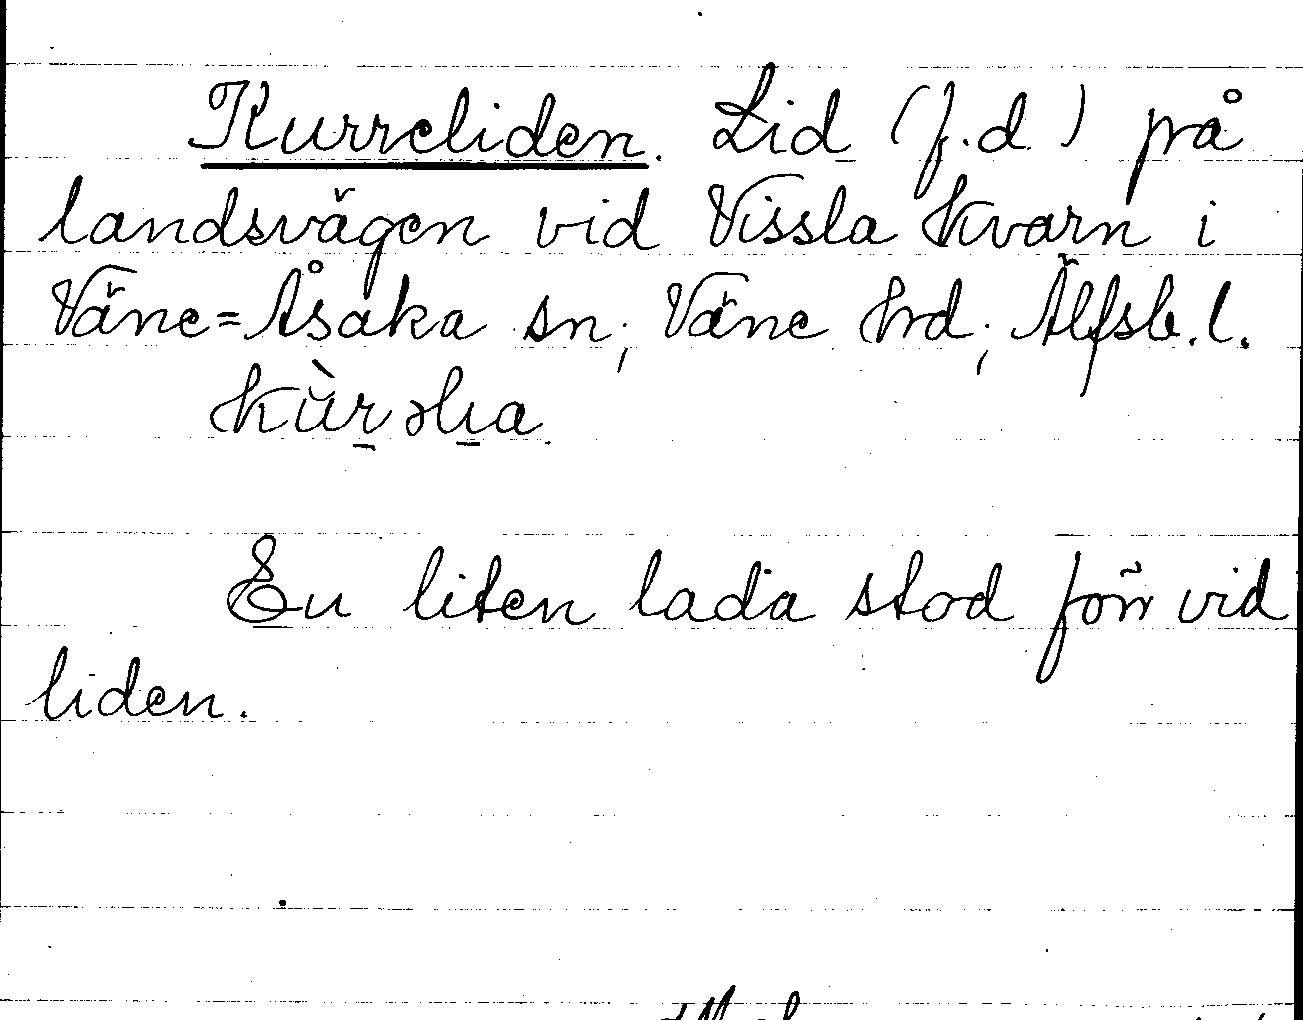 Kurreliden. Lid (f.d.) på
landsvägen vid Vissla Kvarn i
Väne=Åsaka sn, Väne hrd, Älfsb.l.
En liten lada stod förr vid
liden.